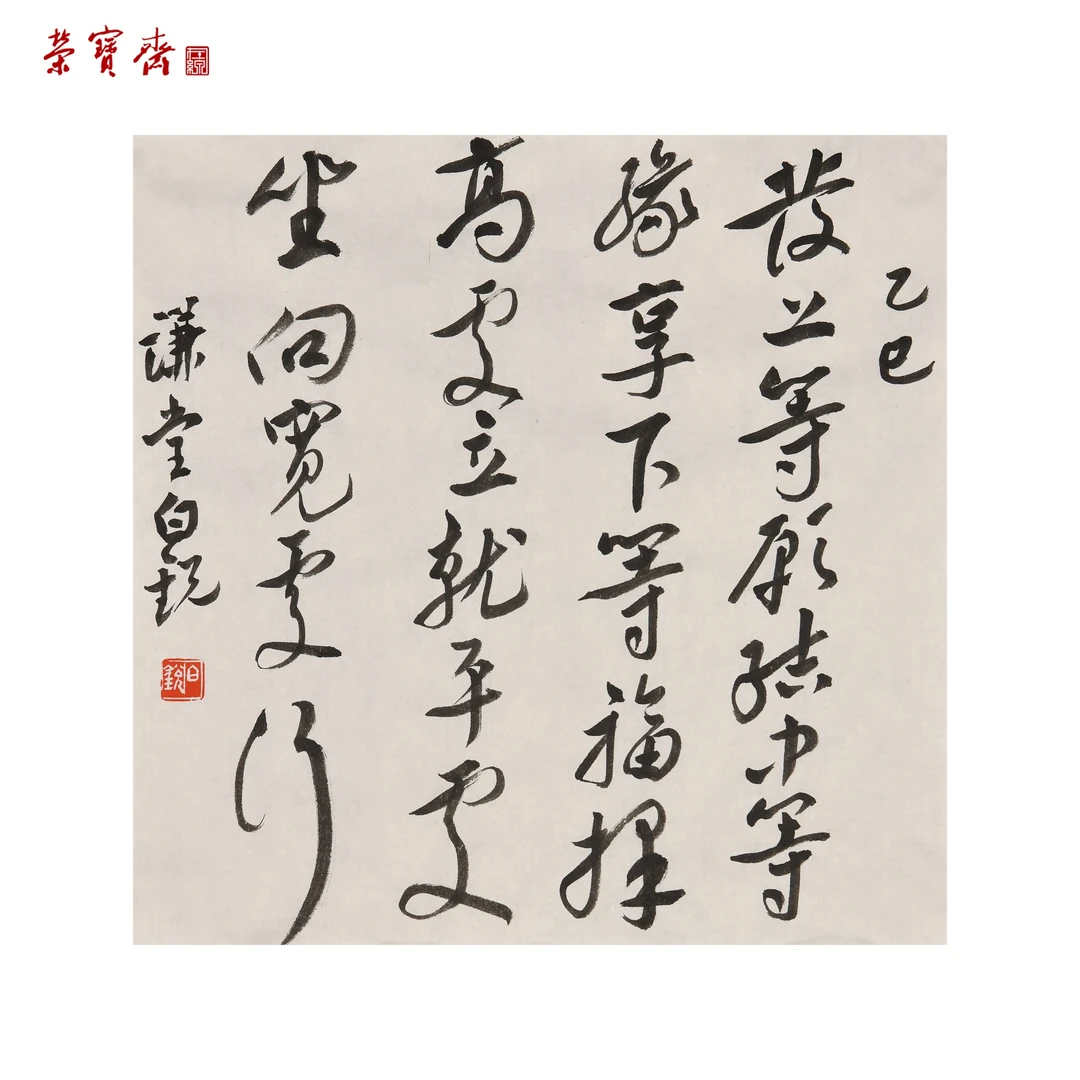 榮寶齋
乙巳
發上等願結中等
緣享下等福擇
高處立就平處
坐向寬處行
謙堂白銳
白銳